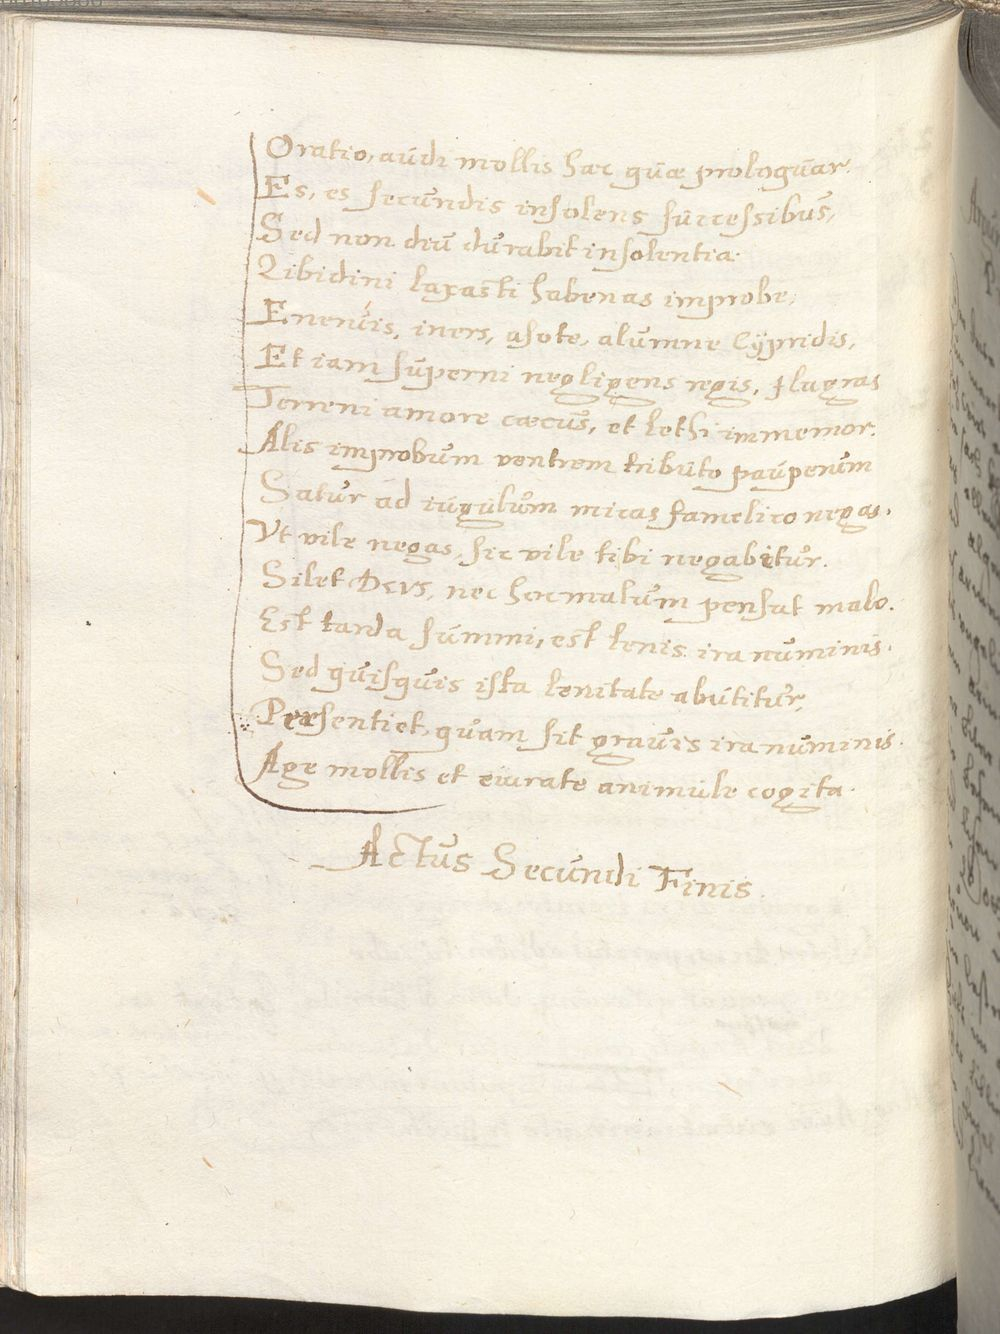 Oratio, audi mollis hæc quæ prologuar.
Es, es secundis insolens successibus,
Sed non diu durabit insolentia.
Libidini laxasti habenas improbe,
Enervis, iners, asote, alumne Cypridis,
Et iam superni negligens regis, flagras
Terreni amore cæcus, et Lethi immemor.
Alis improbum ventrem tributo pauperum
Satur ad iugulum micas famelico negas.
Ut vile negas, sic vile tibi negabitur.
Silet Deus, nec hoc malum pensat malo.
Est tarda summi, est lenis ira numinis.
Sed quisquis ista lenitate abutitur,
Persentiet, quam sit gravis ira numinis.
Age mollis et animule cogita.
Actus Secundi Finis